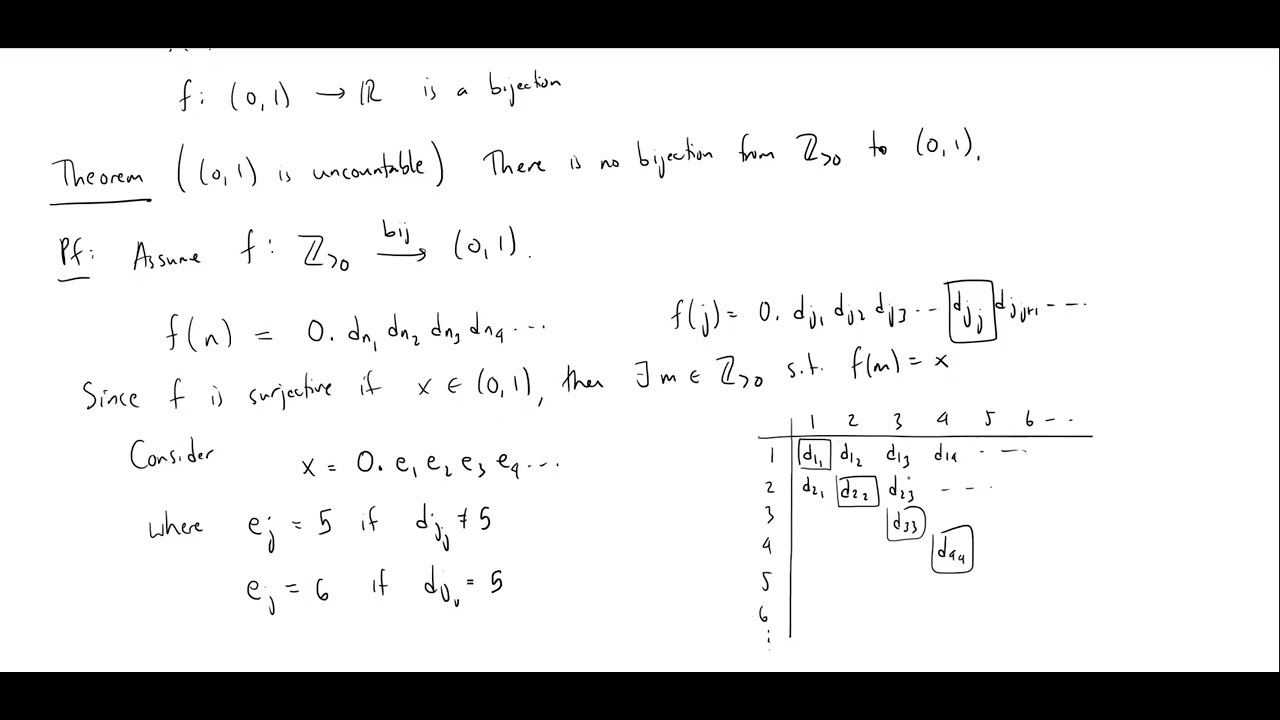 f: (0,1) → ℝ is a bijection
Theorem ((0,1) is uncountable) There is no bijection from ℤ>0 to (0,1).
Pf: Assume f: ℤ>0 bij→ (0,1).
f(n) = 0. dn1 dn2 dn3 dn4 ...
f(j) = 0. dj1 dj2 dj3 ... djj djj+1 ...
Since f is surjective if x ∈ (0,1), then ∃ m ∈ ℤ>0 s.t. f(m) = x
Consider x = 0. e1 e2 e3 e4 ...
where ej = 5 if djj ≠ 5
ej = 6 if djj = 5
1 2 3 4 5 6 ...
1 d11 d12 d13 d14 ...
2 d21 d22 d23 ...
3 d33
4 d44
5
6
⋮